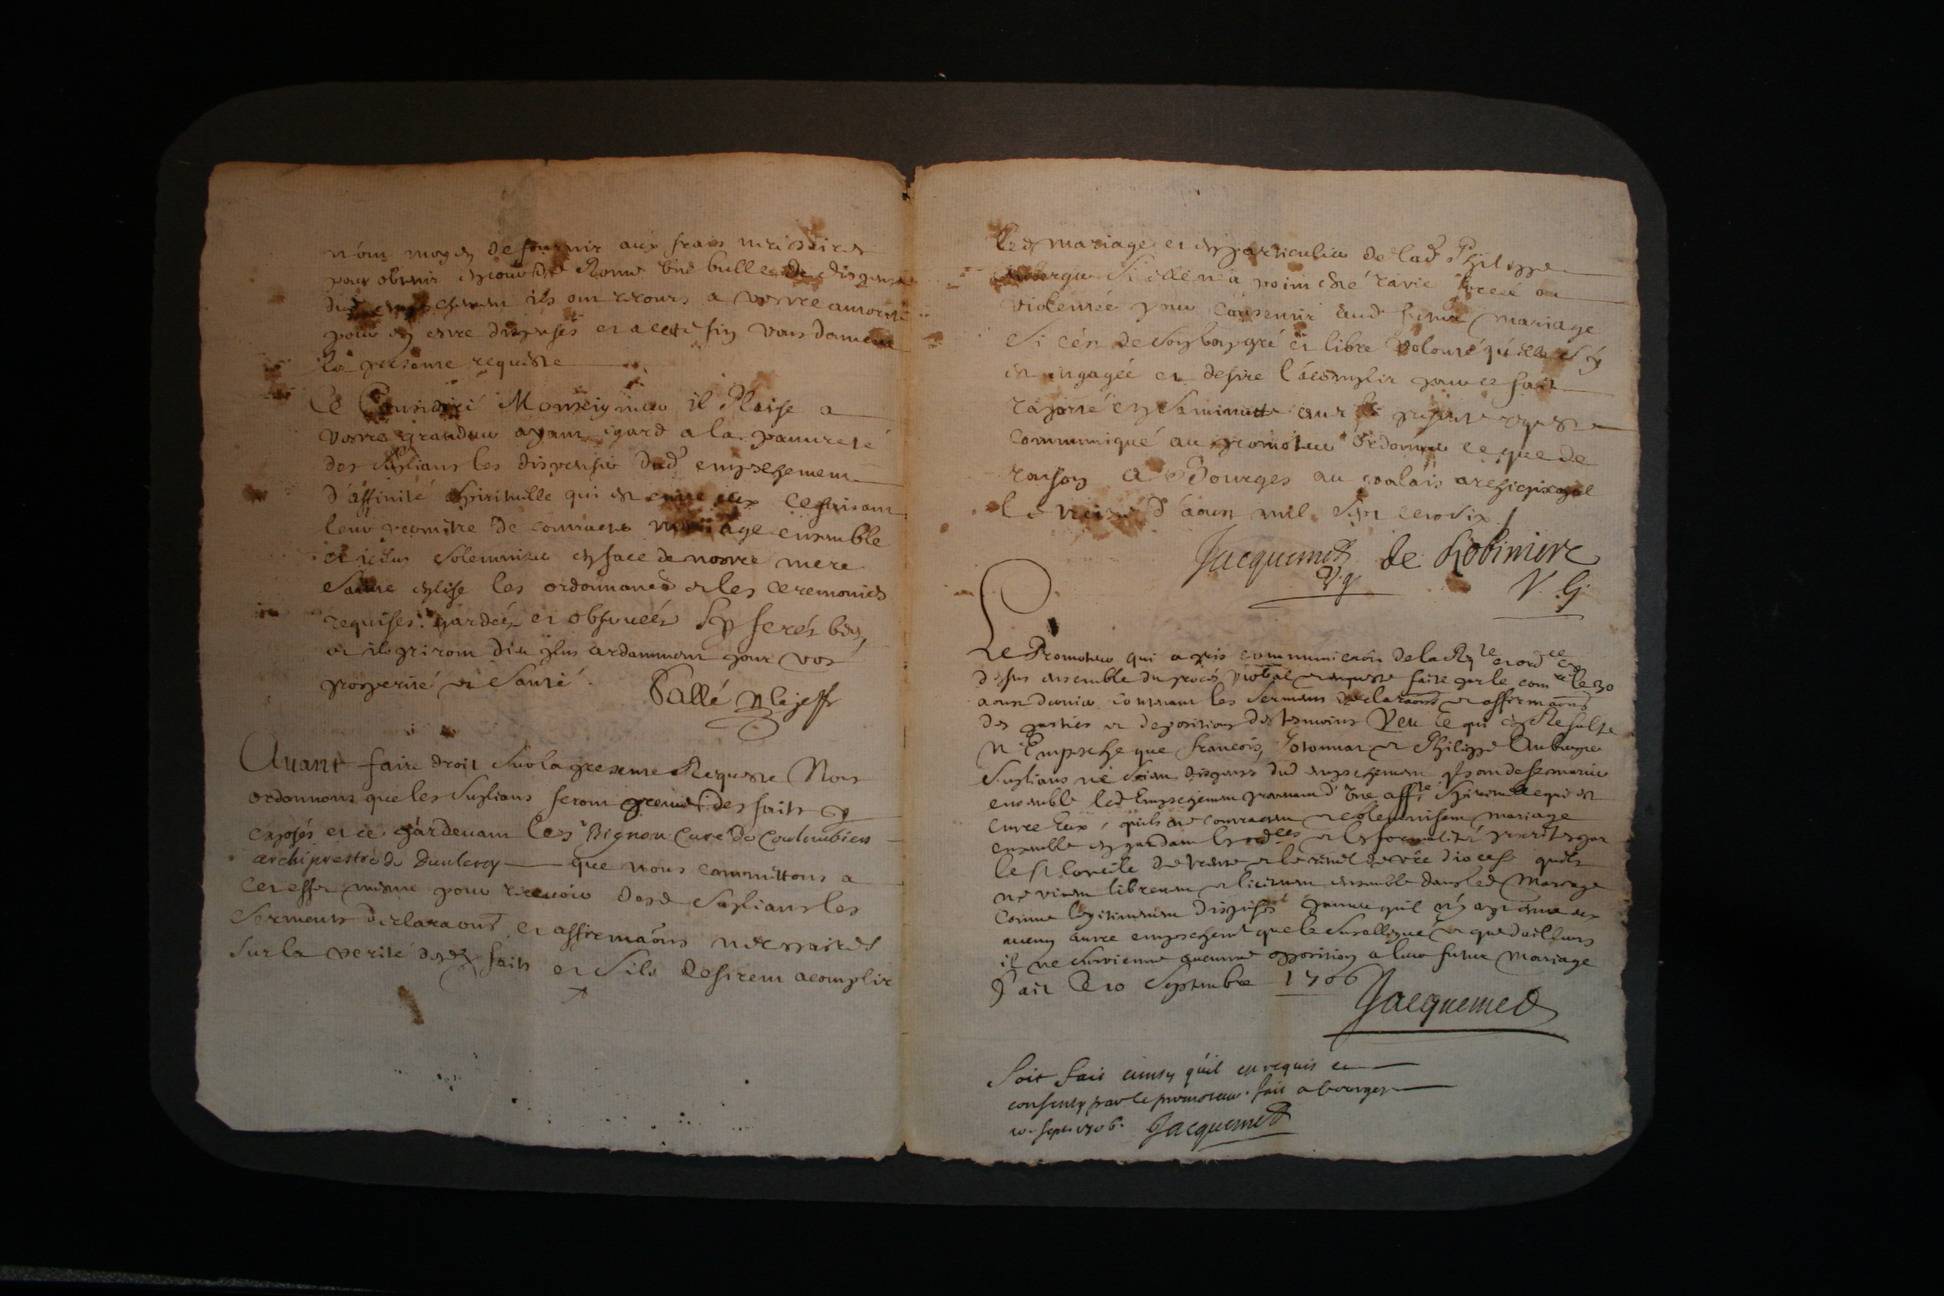 n'ont moyen de fournir aux frais necessaires
pour obtenir en cour de Rome une bulle de dispense
dud empeschement ils ont recours a vostre autorité
pour en estre dispensés et a cette fin vous donnent
la presente requeste
Ce Consideré Monseigneur il Plaise a
vostre grandeur ayant egard a la pauvreté
des suplians les dispenser dud empeschement
d'affinité spirituelle qui est entre eux ce faisant
leur permettre de contracter mariage ensemble
et iceluy solemniser en face de nostre mere
Sainte eglise les ordonnances et les ceremonies
requises gardées et observées Sy ferés bien,
et ils priront Dieu plus ardamment pour vos
prosperité et Santé.
Pallé
Avant faire droit sur la presente Requeste Nous
ordonnons que les suplians feront preuve des faits y
exposés et ce pardevant le Sr Bignon Curé de Coulombiers
archiprestre de Dunleroy que nous committons a
cet effet mesme pour recevoir desd suplians les
serments declaraons et affirmaons necessaires
sur la verité desd faits et s'ils desirent acomplir
led mariage et en particulier de lad Philippe
auburgue si elle n'a point esté ravie forcée ou
violentée pour consentir aud futur mariage
si c'est de son bon gré et libre volonté qu'elle s'y
est engagée et desire l'acomplir pour ce fait
raporté en sa minutte avec la presente requeste
communiqué au promoteur ordonner ce que de
raison a Bourges au palais archiepiscopal
le d'aoust mil sept cent six
Jacquemet de Robiniere
V. g. V. G.
Le Promoteur qui a pris communication de la Rqte et ordce cy
dessus ensemble du procés verbal et enqueste faite par le comre le 30
aoust dernier contenant les serments declaraons et affirmaons
des parties et depositions des tesmoins Veu ce qui en Resulte
N'Empesche que francois et Philippe Auburgue
Suplians ne soient dispensés dud empeschement
ensemble led Empeschement provenant d'une affté spirituelle qui est
entre Eux, qu'ils ne contractent et solemnisent mariage
ensemble en gardant les ordces et les formalités prescrites par
le St Concile de Trente et le rituel de ce diocese qu'ils
ne vivent librement et licitement ensemble dans led Mariage
comme legitimement dispensés pourveu qu'il n'y ayt entre eux
aucun autre empeschemt que le susallegué et que d'ailleurs
il ne survienne aucune opposition a leur futur mariage
Fait ce 10 Septembre 1706
Jacquemet
Soit fait ainsy qu'il est requis et
consenty par le promoteur. fait a bourges
10. sept. 1706. Jacquemet